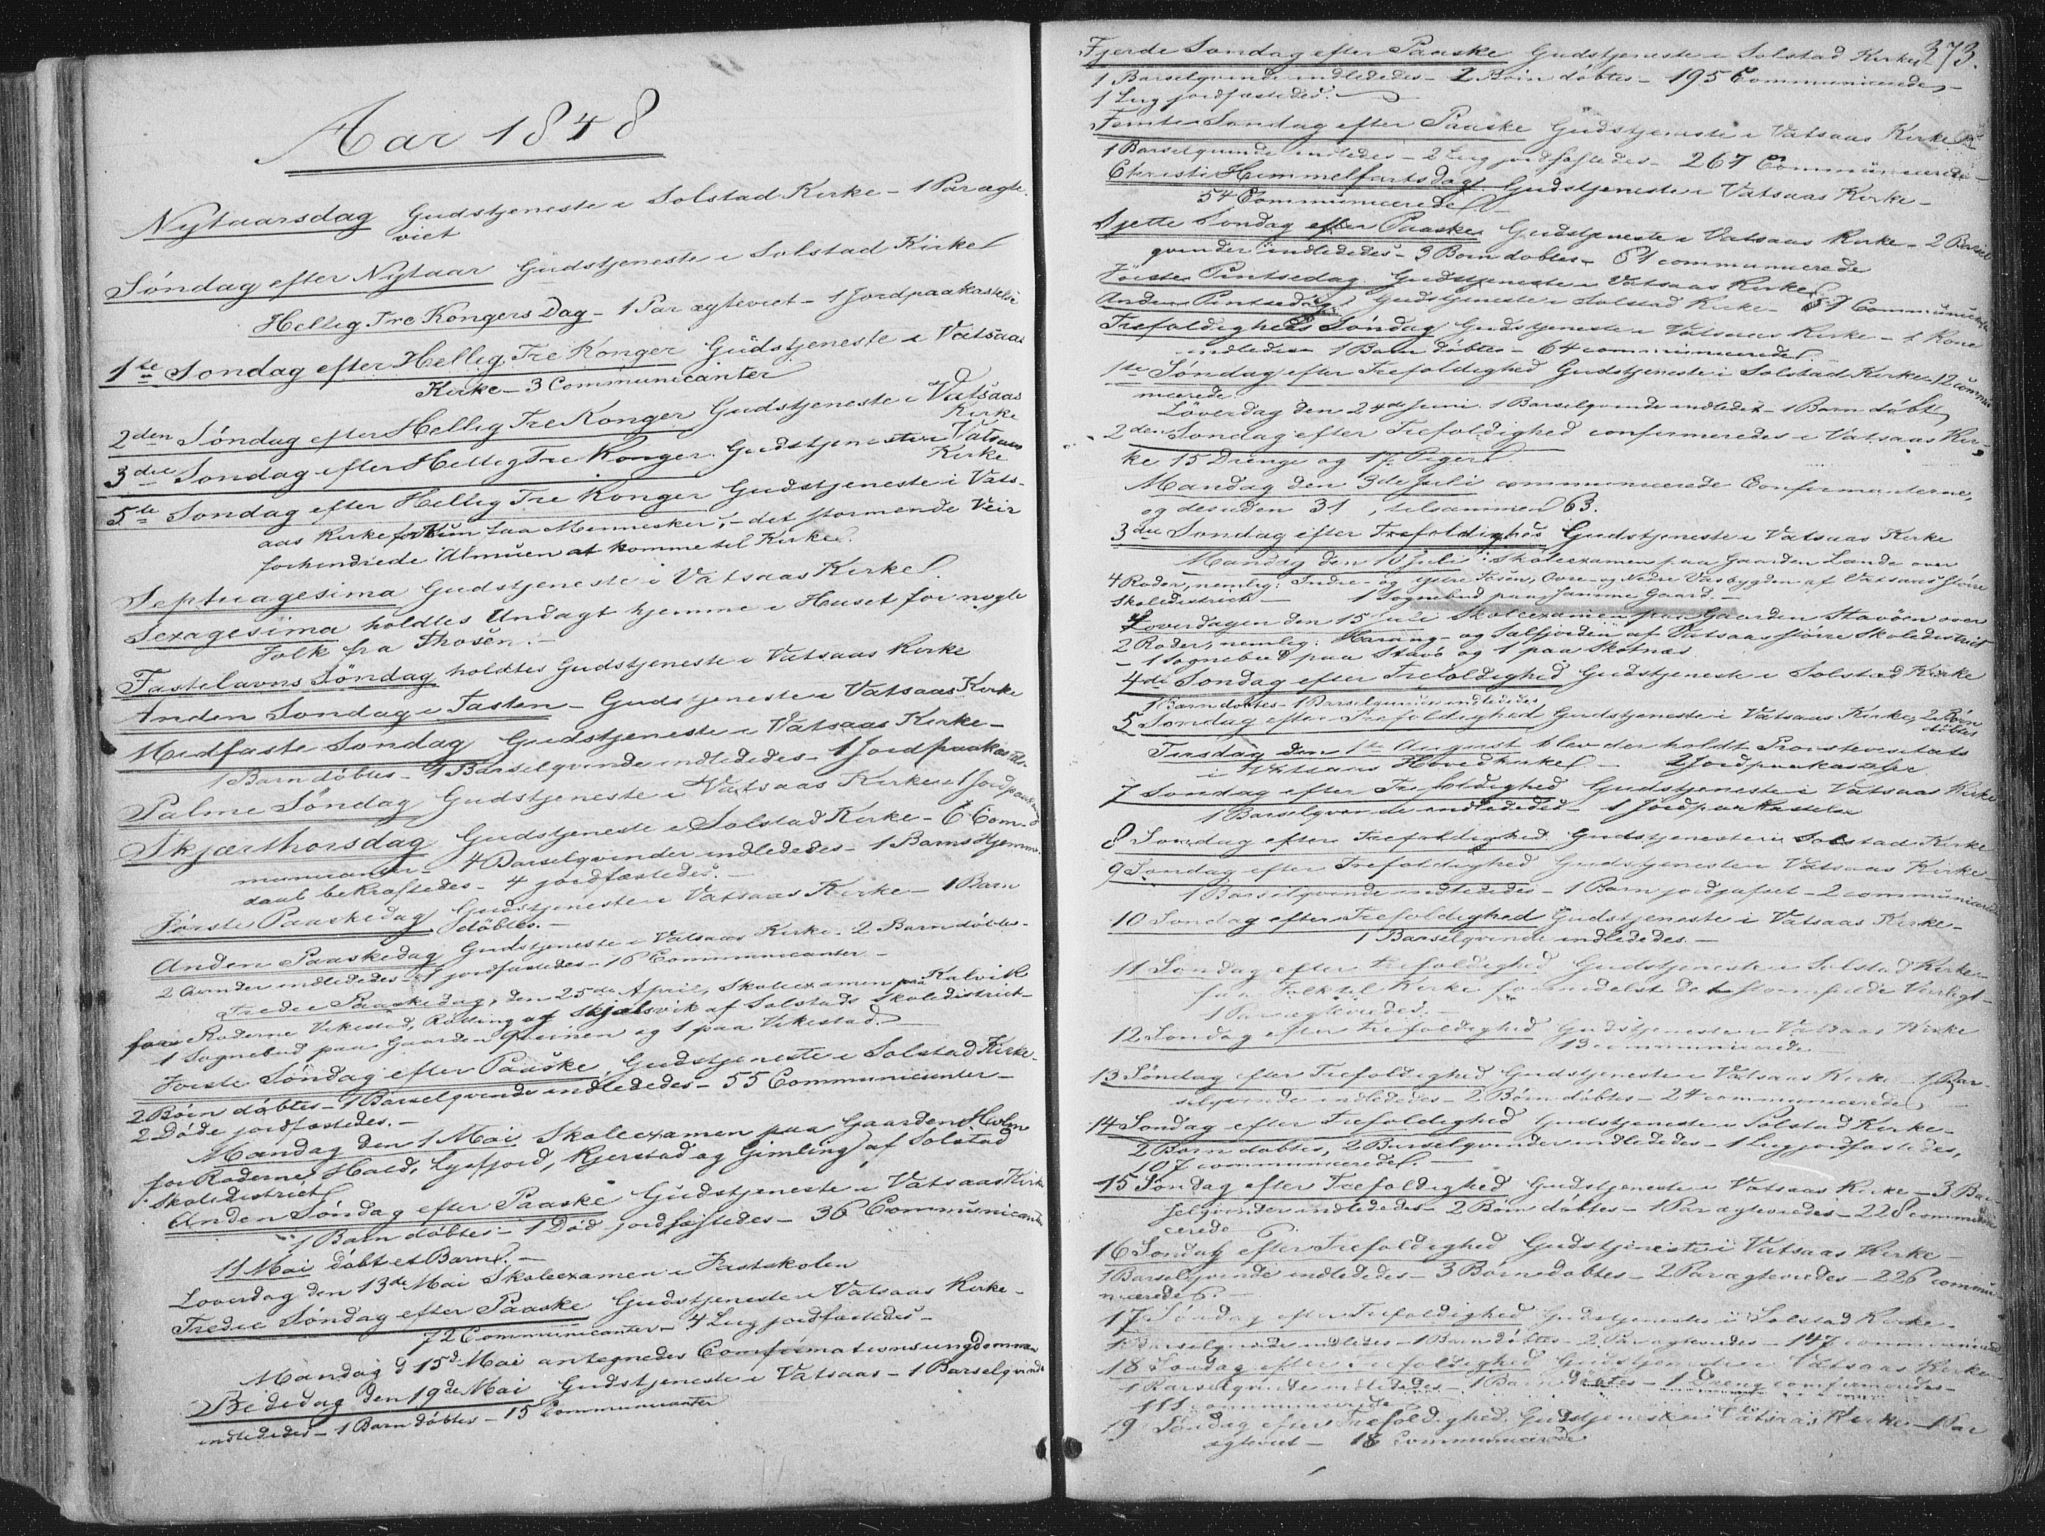 Aar 1848
Nytaarsdag Gudstjeneste i Solstad Kirke – 1 Par ægte-
viet
Søndag efter Nytaar Gudstjeneste i Solstad Kirke
Hellig Tre Kongers Dag – 1 Par ægteviet – 1 Jordpaakastelse
1ste Søndag efter Hellig Tre Konger Gudstjeneste i Vatsaas
Kirke – 3 Communicanter
2den Søndag efter Hellig Tre Konger Gudstjeneste i Vatsaas
Kirke
3die Søndag efter Hellig Tre Konger Gudstjeneste i Vatsaas
Kirke
5te Søndag efter Hellig Tre Konger Gudstjeneste i Vats-
aas Kirke for kun faa Mennesker, – det stormende Veir
forhindrede Almuen at komme til Kirke.
Septuagesima Gudstjeneste i Vatsaas Kirke.
Sexagesima holdtes Andagt hjemme i Huset for nogle
Folk fra Thosen. –
Fastelavns Søndag holdtes Gudstjeneste i Vatsaas Kirke
Anden Søndag i Fasten – Gudstjeneste i Vatsaas Kirke
Midfaste Søndag Gudstjeneste i Vatsaas Kirke –
1 Barn døbtes – 1 Barselqvinde indlededes – 1 Jordpaakastelse
Palme Søndag Gudstjeneste i Vatsaas Kirke 1 Jordpaakast
Skjærthorsdag Gudstjeneste i Solstad Kirke – 6 Com-
municanter – 4 Barselqvinder indlededes – 1 Barns Hjemme-
daab bekræftedes – 4 jordfæstedes. –
Første Paaskedag Gudstjeneste i Vatsaas Kirke – 1 Barn
døbtes. –
Anden Paaskedag Gudstjeneste i Vatsaas Kirke. 2 Barn døbtes –
2 Qvinder indlededes – 1 jordfæstedes – 16 Communicanter –
Tredie Paaskedag, den 25de April, Skoleexamen paa Kalvik
for Roderne Vikestad, Rølling og Skjelsvik af Solstads Skoledistrict –
1 Sognebud paa Gaarden Qveinen og 1 paa Vikestad. –
Første Søndag efter Paaske, Gudstjeneste i Solstad Kirke –
2 Børn døbtes – 1 Barselqvinde indlededes – 55 Communicanter –
2 Døde jordfæstedes. –
Mandag den 1 Mai Skoleexamen paa Gaarden Holm
for Roderne Hald, Lysfjord, Kjerstad og Gimling af Solstad
Skoledistrict
Anden Søndag efter Paaske Gudstjeneste i Vatsaas Kirke
1 Barn døbtes – 1 Død jordfæstedes – 36 Communicanter
11 Mai døbt et Barn. –
Løverdag den 13de Mai Skoleexamen i Fastskolen
Tredie Søndag efter Paaske Gudstjeneste i Vatsaas Kirke –
72 Communicanter – 4 Liig jordfæstedes –
Mandag d 15d Mai antegnedes Comfirmationsungdommen
Bededag den 19de Mai Gudstjeneste i Vatsaas – 1 Barselqvinde
indlededes – 1 Barn døbtes – 15 Communicanter
373.
Fjerde Søndag efter Paaske Gudstjeneste i Solstad Kirke
1 Barselqvinde indlededes – 2 Børn døbtes – 195 Communicerede –
1 Liig jordfæstedes.
Femte Søndag efter Paaske Gudstjeneste i Vatsaas Kirke
1 Barselqvinde indledes – 2 Liig jordfæstedes – 267 Communicerede –
Christi Himmelfartsdag Gudstjeneste i Vatsaas Kirke –
54 Communicerede
Sjette Søndag efter Paaske Gudstjeneste i Vatsaas Kirke – 2 Barsel
qvinder indlededes – 3 Børn døbtes – 61 communicerede
Første Pintsedag Gudstjeneste i Vatsaas Kirke
Anden Pintsedag Gudstjeneste i Solstad Kirke – 57 Communicerede
Trefoldigheds Søndag Gudstjeneste i Vatsaas Kirke – 1 Kone
indledes – 1 Barn døbtes – 64 communicerede.
1ste Søndag efter Trefoldighed Gudstjeneste i Solstad Kirke – 12 commu
nicerede
Løverdag den 24de Juni. 1 Barselqvinde indledet – 1 Barn døbt
2den Søndag efter Trefoldighed confirmeredes i Vatsaas Kir-
ke 15 Drenge og 17 Piger.
Mandag den 3de Juli communicerede Confirmanterne,
og desuden 31, tilsammen 63.
3die Søndag efter Trefoldighed Gudstjeneste i Vatsaas Kirke
Mandag den 10 Juli Skoleexamen paa Gaarden Lande over
4 Roder, nemlig: Indre- og ydre Tosen, Øvre- og Nedre Vasbygden af Vatsaas søndre
Skoledistrict – 1 Sognebud paa samme Gaard –
Løverdagen den 15 Juli Skoleexamen paa Gaarden Stavøen over
2 Roder, nemlig: Harang- og Sælfjorden af Vatsaas større Skoledistrict
– 1 Sognebud paa Stavø og 1 paa Skotnæs.
4de Søndag efter Trefoldighed Gudstjeneste i Solstad Kirke
1 Barn døbtes – 1 Barselqvinde indledes
5 Søndag efter Trefoldighed Gudstjeneste i Vatsaas Kirke, 2 Børn
døbtes
Tirsdag den 1ste August blev der holdt Provstevisitats
i Vatsaas Hovedkirke – 2 Jordpaakastelser
7 Søndag efter Trefoldighed Gudstjeneste i Vatsaas Kirke
1 Barselqvinde indlededes – 1 Jordpaakastelse
8 Søndag efter Trefoldighed Gudstjeneste i Solstad Kirke
9 Søndag efter Trefoldighed Gudstjeneste i Vatsaas Kirke –
1 Barselqvinde indlededes – 1 Barn jordfæstet – 2 communicerede
10 Søndag efter Trefoldighed Gudstjeneste i Vatsaas Kirke –
1 Barselqvinde indlededes. –
11 Søndag efter Trefoldighed Gudstjeneste i Solstad Kirke –
faa Folk til Kirke formedelst det stormfulde Veirligt –
1 Par ægteviedes. –
12 Søndag efter Trefoldighed Gudstjeneste i Vatsaas Kirke
13 communicerede –
13 Søndag efter Trefoldighed Gudstjeneste i Vatsaas Kirke – 1 Bar-
selqvinde indlededes – 2 Børn døbtes – 24 communicerede
14 Søndag efter Trefoldighed Gudstjeneste i Solstad Kirke –
2 Børn døbtes, 2 Barselqvinder indlededes – 1 Liig jordfæstedes,
107 communicerede. –
15 Søndag efter Trefoldighed Gudstjeneste i Vatsaas Kirke – 3 Bar
selqvinder indlededes – 2 Børn døbtes – 1 Par ægteviedes – 228 communi
cerede
16 Søndag efter Trefoldighed Gudstjeneste i Vatsaas Kirke –
1 Barselqvinde indlededes – 3 Børn døbtes – 2 Par ægteviedes – 226 commu
nicerede. –
17 Søndag efter Trefoldighed Gudstjeneste i Solstad Kirke –
1 Barselqvinde indledes – 1 Barn døbtes – 2 Par ægteviedes – 147 communicered
18 Søndag efter Trefoldighed Gudstjeneste i Vatsaas Kirke –
1 Barselqvinde indlededes – 1 Barn døbtes – 1 Dreng comfirmeredes –
111 communicerede
19 Søndag efter Trefoldighed Gudstjeneste i Vatsaas Kirke – 1 Par
ægteviet – 18 communicerede